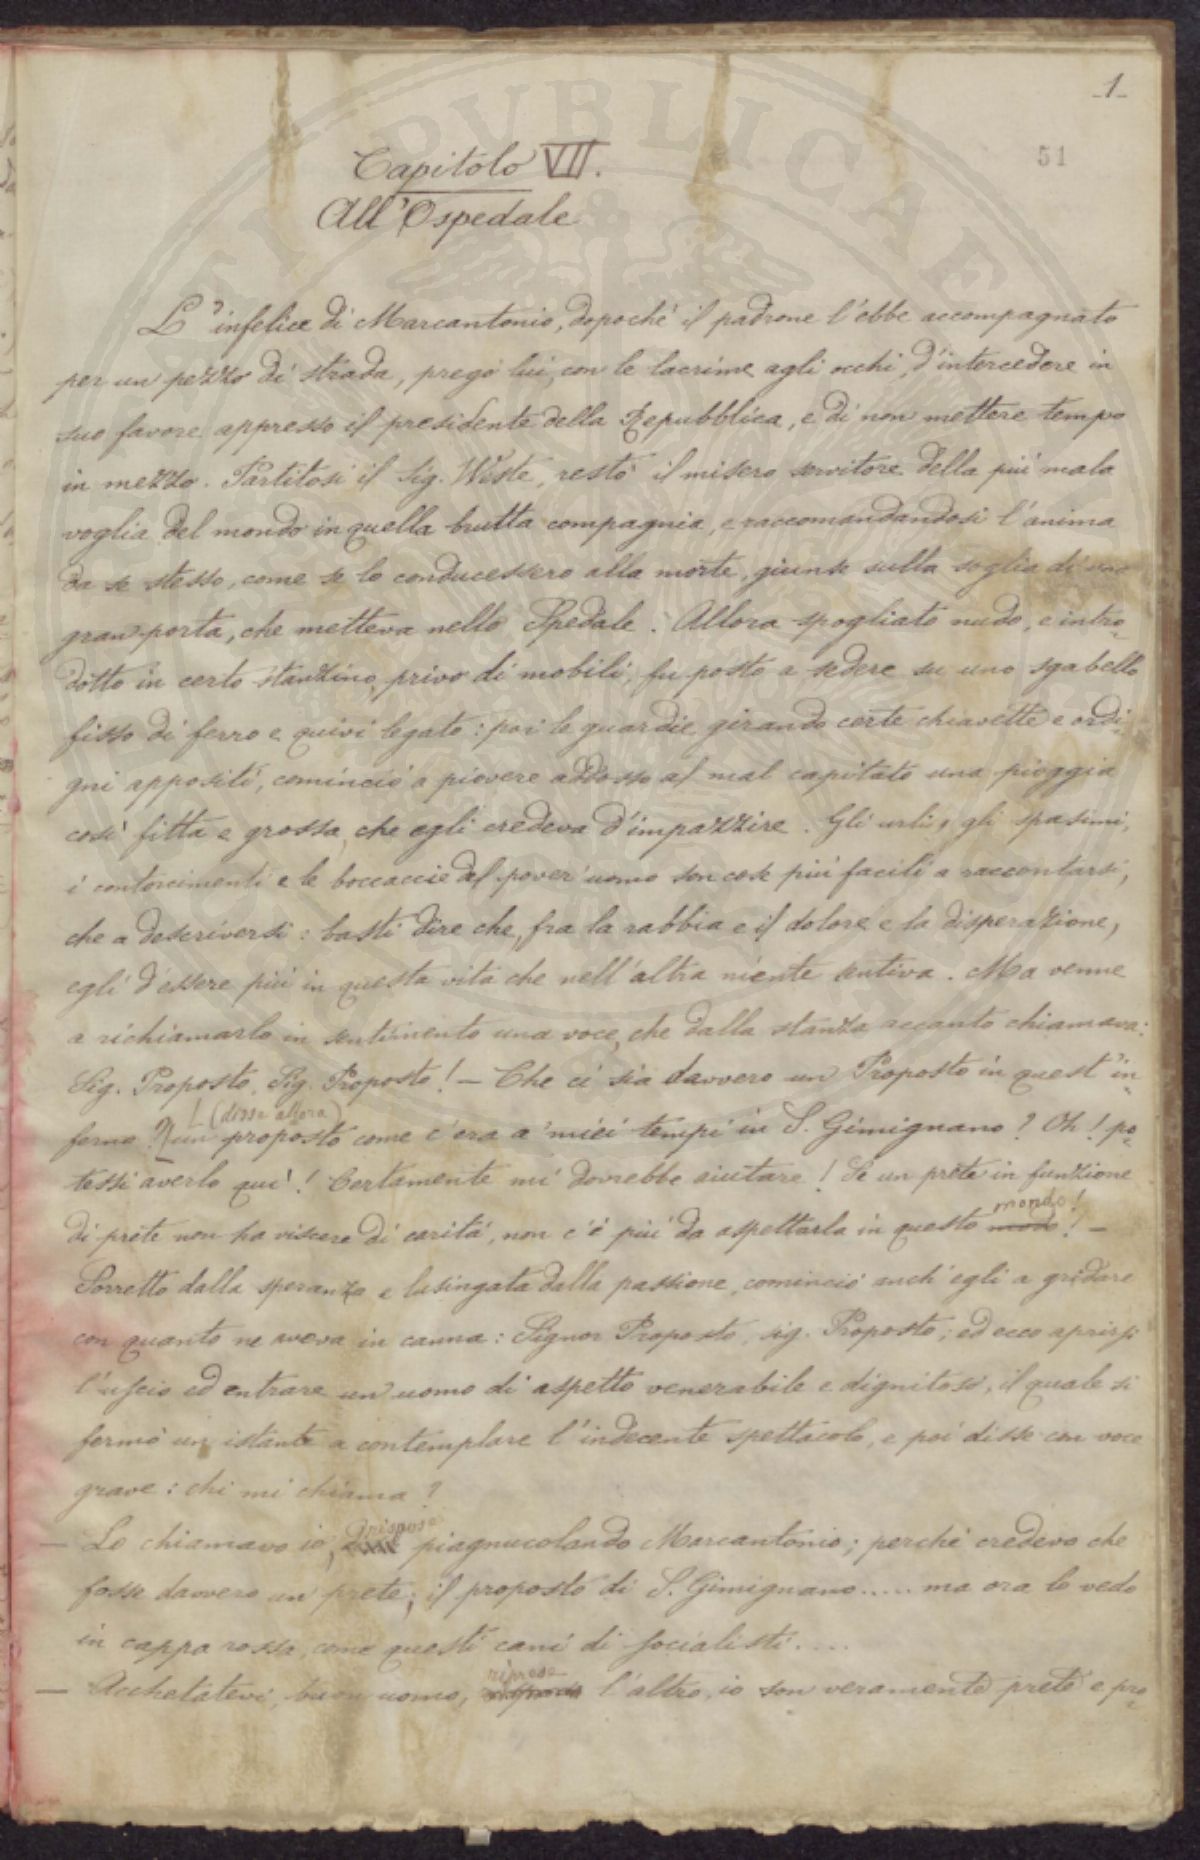 1
51
Capitolo VII.
All'Ospedale
L'infelice di Marcantonio, dopoché il padrone l'ebbe accompagnato
per un pezzo di strada, pregò lui, con le lacrime agli occhi, d'intercedere in
suo favore appresso il presidente della Repubblica, e di non mettere tempo
in mezzo. Partitosi il Sig. Weste, restò il misero servitore della più mala
voglia del mondo in quella brutta compagnia, e raccomandandosi l'anima
da se stesso, come se lo conducessero alla morte, giunse sulla soglia di una
gran porta, che metteva nello Spedale. Allora spogliato nudo, e intro-
dotto in certo stanzino privo di mobili, fu posto a sedere su uno sgabello
fisso di ferro e quivi legato: poi le guardie girando certe chiavette e ordi-
gni appositi, cominciò a piovere addosso al mal capitato una pioggia
così fitta e grossa, che egli credeva d'impazzire. Gli urli, gli spasimi,
i contorcimenti e le boccaccie del pover'uomo son cose più facili a raccontarsi,
che a descriversi: basti dire che, fra la rabbia e il dolore e la disperazione,
egli d'essere più in questa vita che nell'altra niente sentiva. Ma venne
a richiamarlo in sentimento una voce, che dalla stanza accanto chiamava:
Sig. Proposto, Sig. Proposto! — Che ci sia davvero un Proposto in quest'in-
(disse allora)
ferno? un proposto come c'era a' miei tempi in S. Gimignano? Oh! po-
tessi averlo quì! Certamente mi dovrebbe aiutare! Se un prete in funzione
mondo!
di prete non ha viscere di carità, non c'è più da aspettarla in questo modo! —
Sorretto dalla speranza e lusingata dalla passione, cominciò anch'egli a gridare
con quanto ne aveva in canna: Signor Proposto, sig. Proposto; ed ecco aprirsi
l'uscio ed entrare un uomo di aspetto venerabile e dignitoso, il quale si
fermò un istante a contemplare l'indecente spettacolo, e poi disse con voce
grave: chi mi chiama?
rispose
— Lo chiamavo io, piagnucolando Marcantonio; perché credevo che
fosse davvero un prete; il proposto di S. Gimignano..... ma ora lo vedo
in cappa rossa, come questi cani di socialisti....
riprese
— Acchetatevi, buon uomo, l'altro, io son veramente prete e pro-